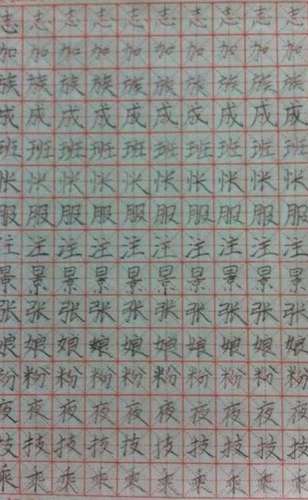 志志志志志志志志志志
加加加加加加加加加加
族族族族族族族族族族
成成成成成成成成成成
班班班班班班班班班班
怅怅怅怅怅怅怅怅怅怅
服服服服服服服服服服
注注注注注注注注注注
景景景景景景景景景景
张张张张张张张张张张
娘娘娘娘娘娘娘娘娘娘
粉粉粉粉粉粉粉粉粉粉
夜夜夜夜夜夜夜夜夜夜
技技技技技技技技技技
乘乘乘乘乘乘乘乘乘乘